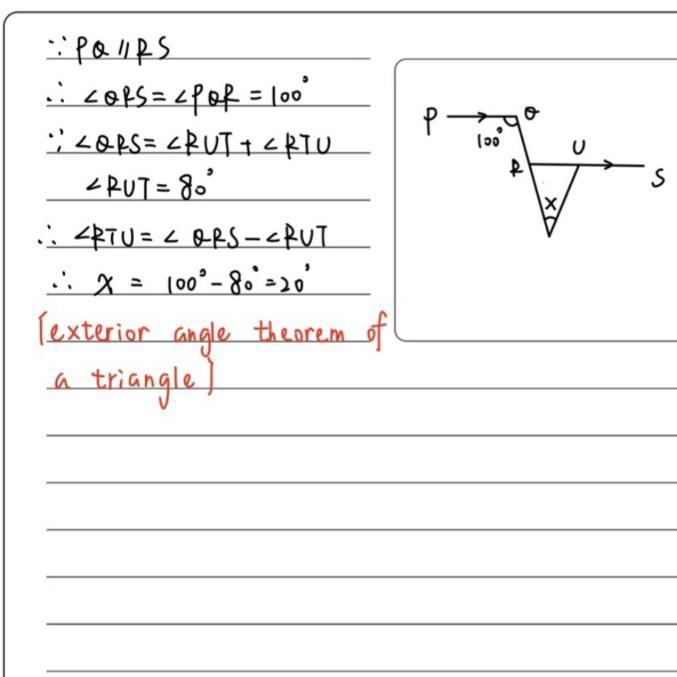 ∵ PQ // RS
∴ ∠QRS = ∠PQR = 100°
∵ ∠QRS = ∠RUT + ∠RTU
∠RUT = 80°
∴ ∠RTU = ∠QRS - ∠RUT
∴ x = 100° - 80° = 20°
[exterior angle theorem of
a triangle]
P
Q
100°
R
U
S
x